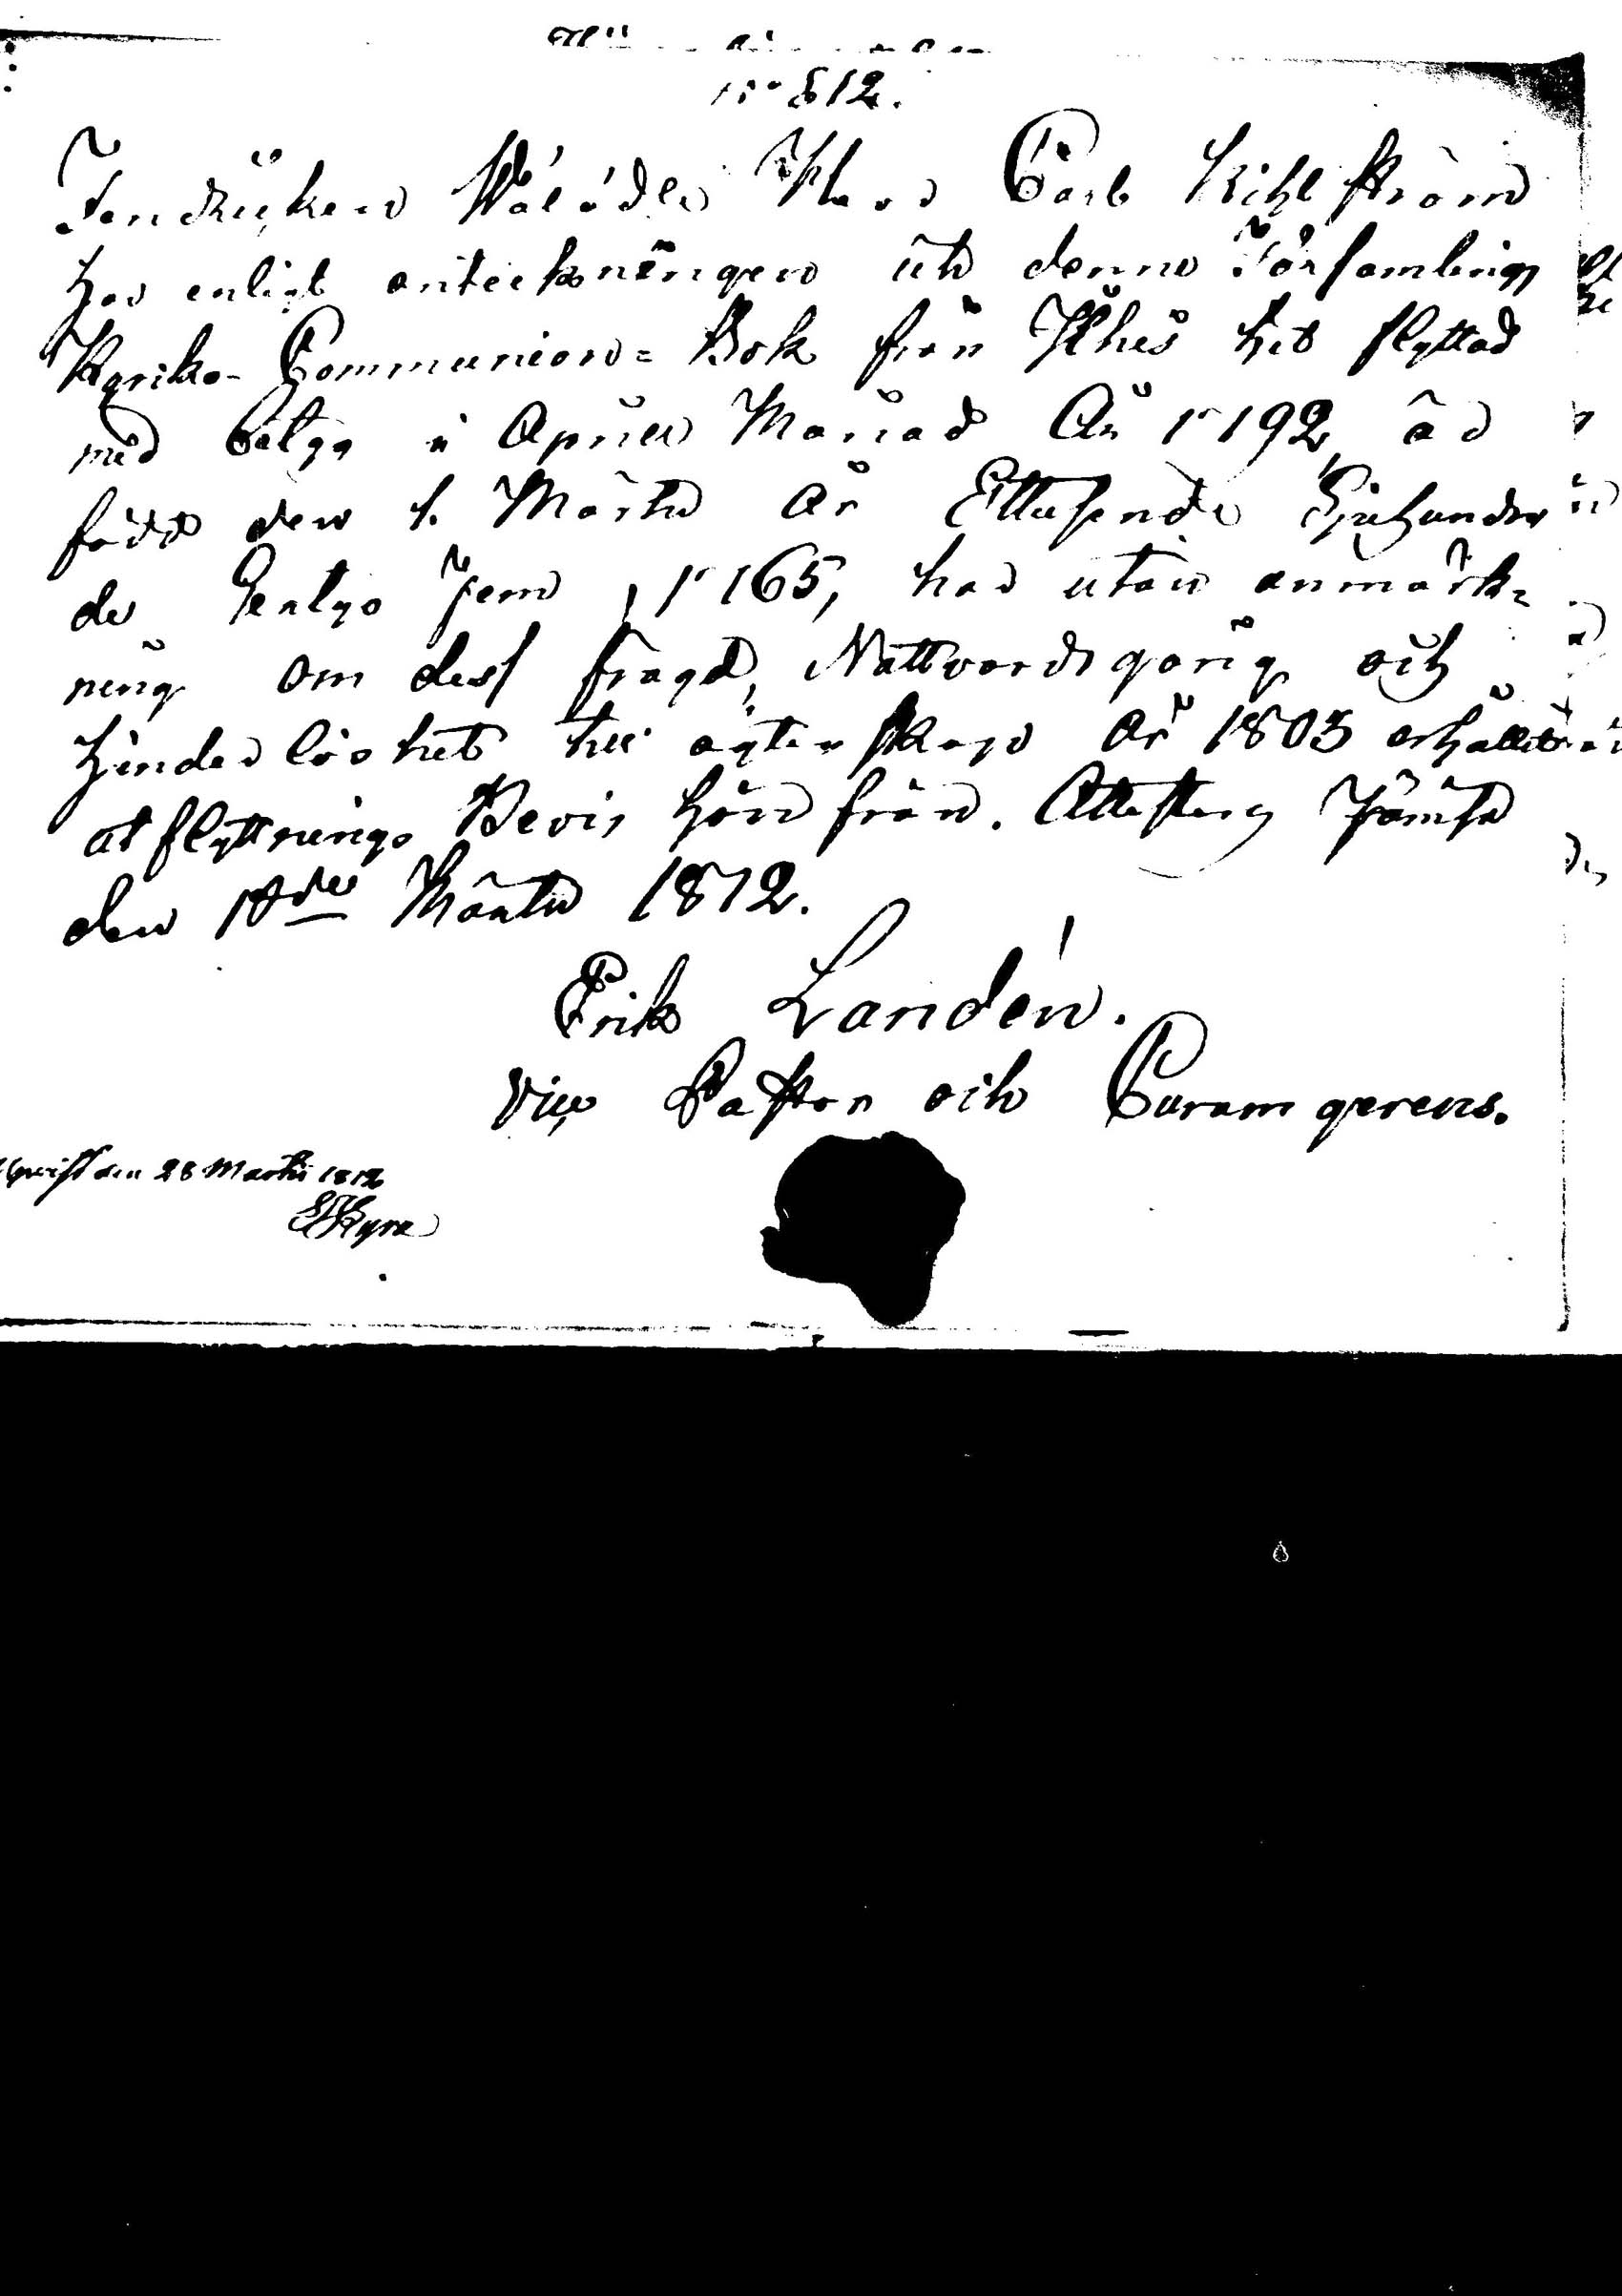 N:o 512.
Fendricken Wälädle Herr Carl Kihlström
har enligt anteckningen uti denna Församlings
Kyrko-Communion=Bok från hit flyttad
med betyg i April Månad År 1792, är
född den 1. Martii År Ettusende Sjuhundra
de Sextio Fem, 1765, har utan anmärk=
ning om dess frägd, Nattvardsgång och
hinderlöshet till ägtenskap År 1805 erhållit
afflyttnings Bevis härifrån. Attesteras Jämsä
den Martii 1812.
Erik Landén.
Vice Pastor och Curam gerens.
den 28 Martii 1812